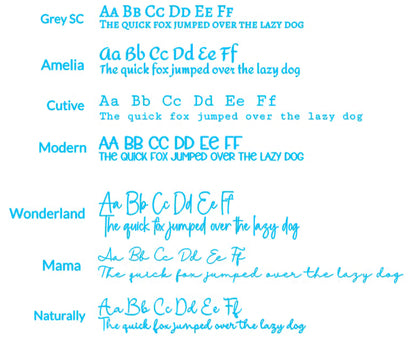 Grey SC
Aa Bb Cc Dd Ee Ff
The quick fox jumped over the lazy dog
Amelia
Aa Bb Cc Dd Ee Ff
The quick fox jumped over the lazy dog
Cutive
Aa Bb Cc Dd Ee Ff
The quick fox jumped over the lazy dog
Modern
AA BB CC DD EE FF
THE QUICK FOX JUMPED OVER THE LAZY DOG
Wonderland
Aa Bb Cc Dd Ee Ff
The quick fox jumped over the lazy dog
Mama
Aa Bb Cc Dd Ee Ff
The quick fox jumped over the lazy dog
Naturally
Aa Bb Cc Dd Ee Ff
The quick fox jumped over the lazy dog